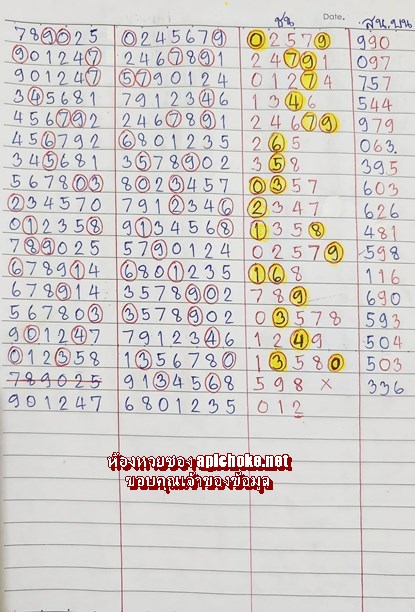 ชน Date. ส.น.บน
789025 0245679 02579 990
901247 2467891 24791 097
901247 5790124 0127 4 757
345681 7912346 1346 544
456792 2467891 24679 979
456792 6801235 265 063.
345681 3578902 358 395
567803 8023457 0357 603
234570 7912346 2347 626
012358 9134568 1358 481
789025 5790124 02579 598
678914 6801235 168 116
678914 3578902 789 690
567803 3578902 03578 593
901247 7912346 1249 504
012358 1356780 13580 503
789025 9134568 598 × 336
901247 6801235 012
ห้องหวยซอง apichoke.net
ขอบคุณเจ้าของข้อมูล